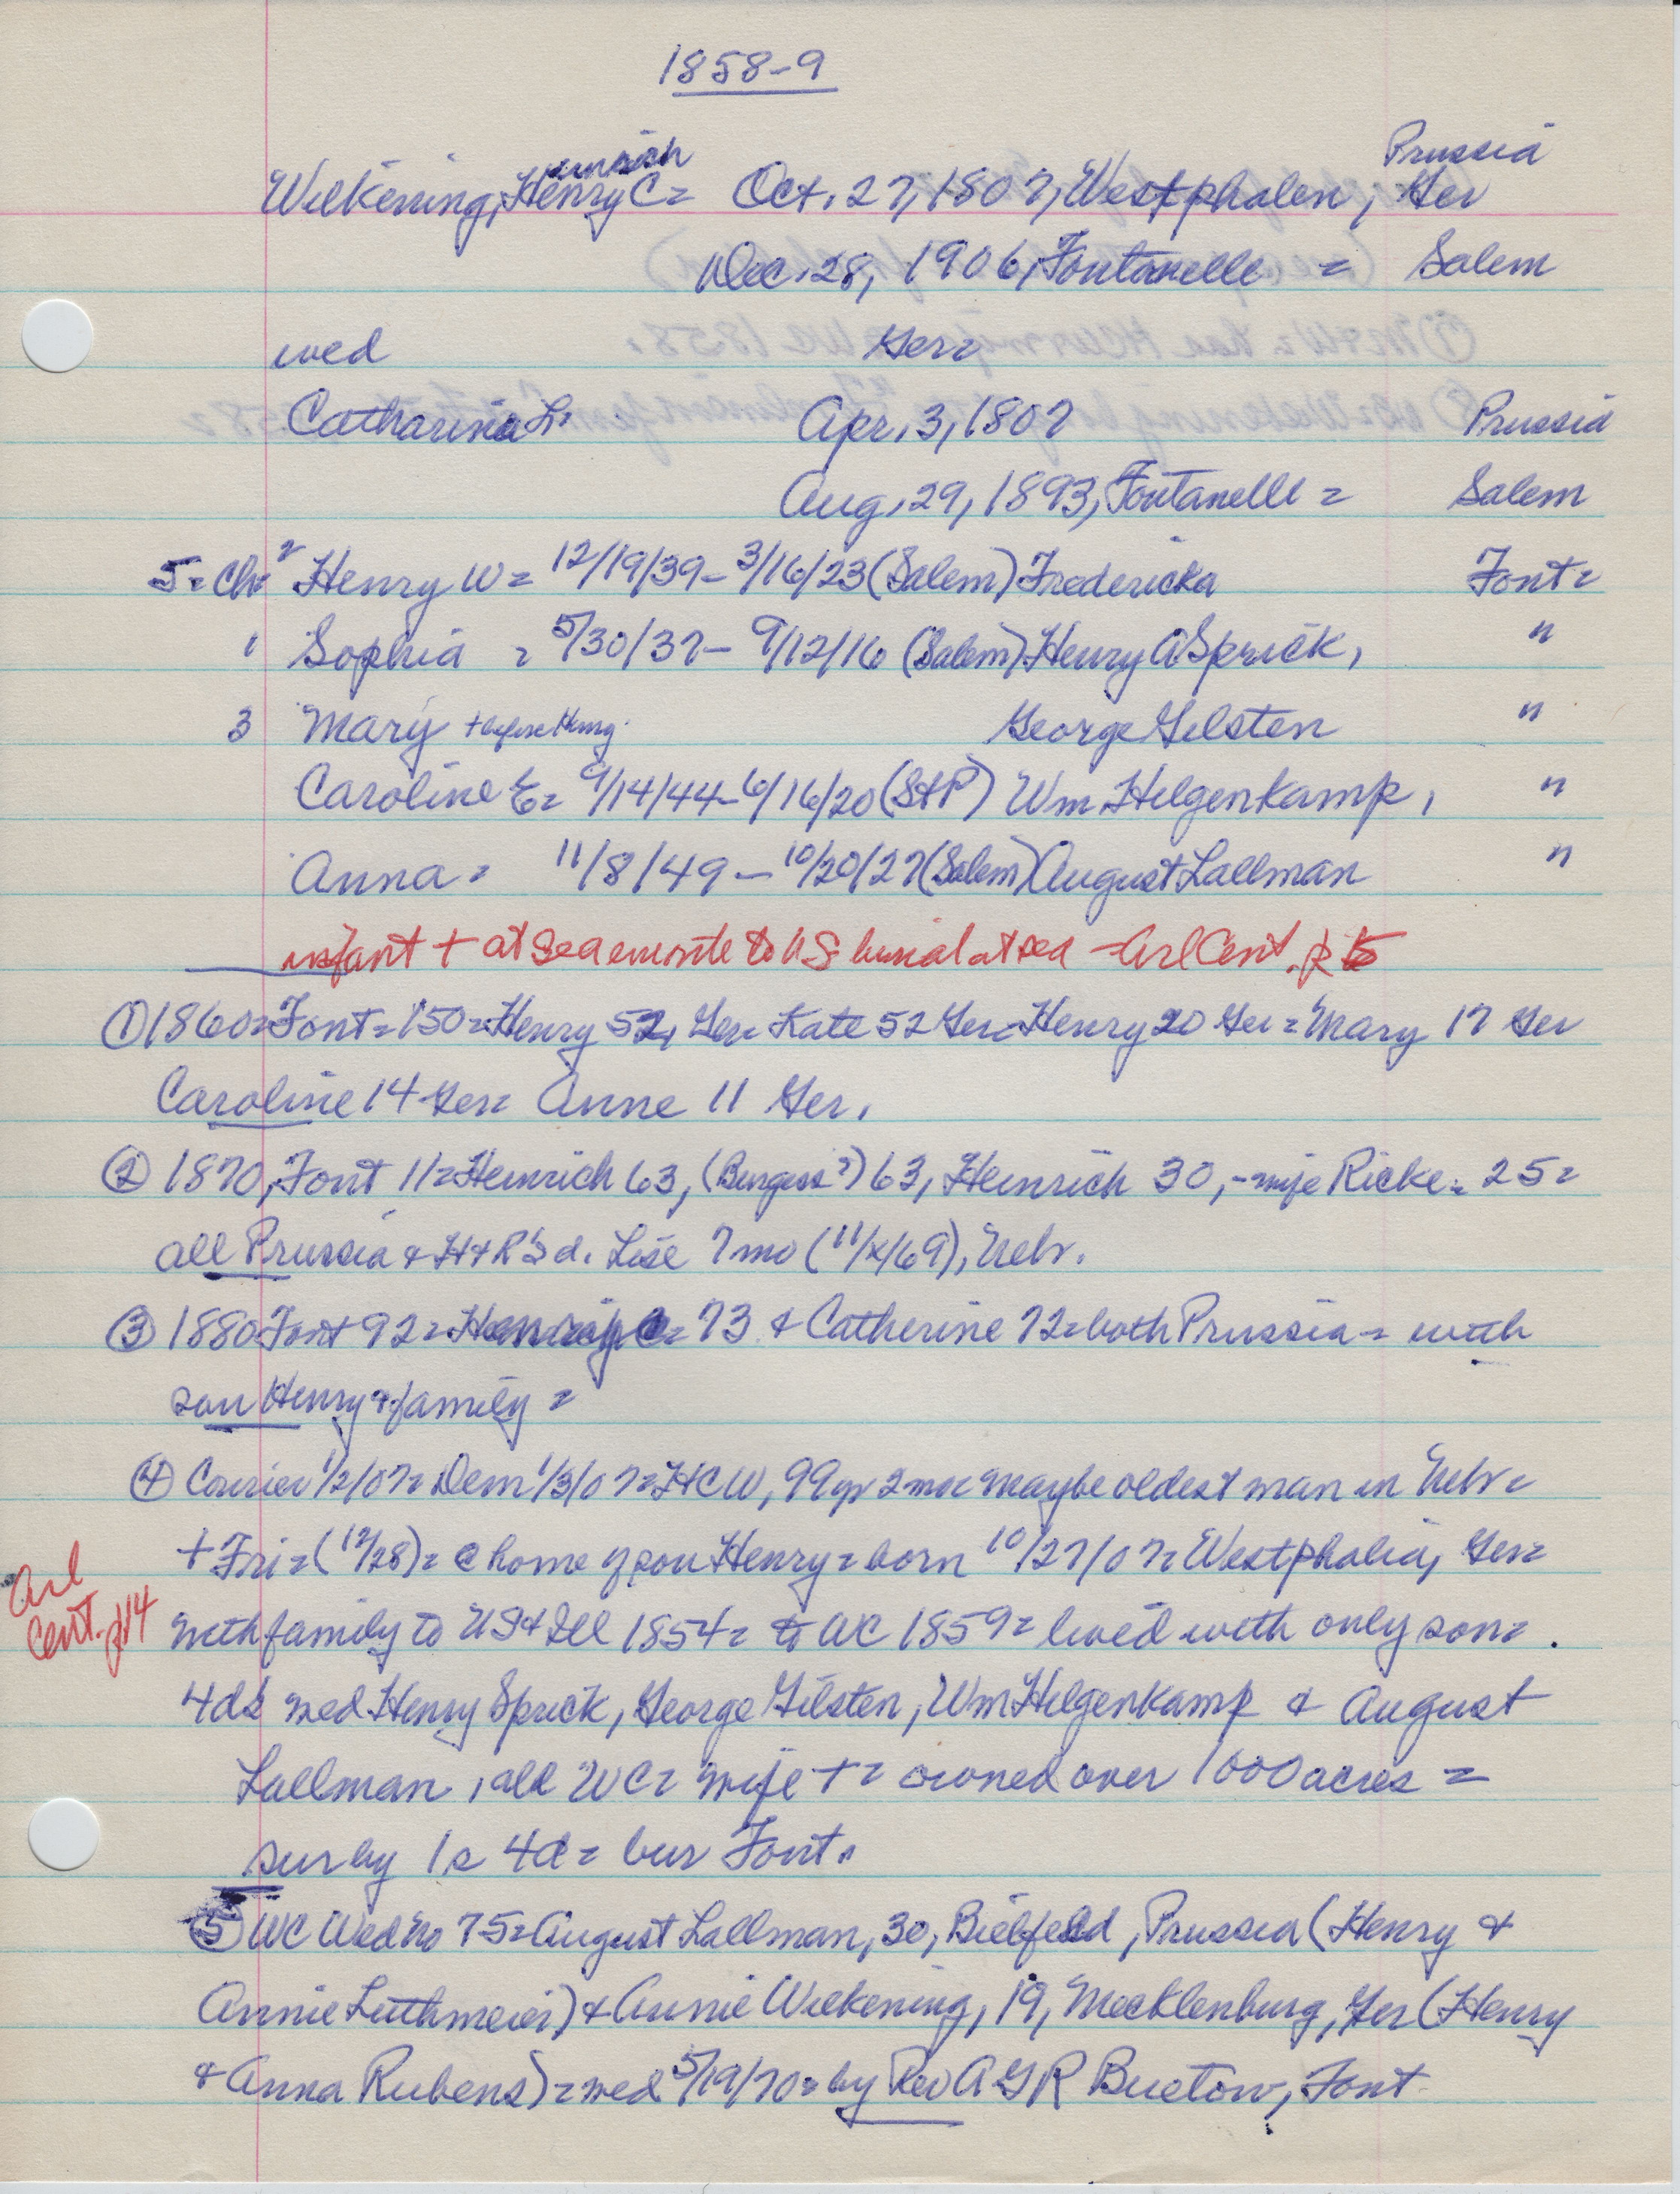 1858-9
Heinrich Prussia
Wilkening, Henry C= Oct. 27, 1807, Westphalen, Ger
Dec. 28, 1906, Fontanelle = Salem
wed Ger=
Catharina L. Apr. 3, 1807 Prussia
Aug. 29, 1893, Fontanelle = Salem
5=Ch= 2 Henry W= 12/19/39-3/16/23 (Salem) Fredericka Font=
1 Sophia = 5/30/37-9/12/16 (Salem) Henry A Sprick, "
3 Mary + before Henry. George Gilsten "
Caroline E= 9/14/44-6/16/20 (St P) Wm Hilgenkamp, "
Anna= 11/8/49-10/20/27 (Salem) August Lallman "
infant + at sea enroute to US burial at sea - Arl Cent. p
① 1860=Font=150=Henry 52, Ger= Kate 52 Ger= Henry 20 Ger= Mary 17 Ger
Caroline 14 Ger= Anne 11 Ger.
② 1870, Font 11=Heinrich 63, (Burgess?) 63, Heinrich 30,-wife Ricke= 25=
all Prussia & H+R's d. Lise 7mo (11/x/69), Nebr.
③ 1880 Font 92= 73 & Catherine 72=both Prussia= with
son Henry & family=
④ Courier 1/2/07= Dem 1/3/07=HCW, 99yr 2mo= maybe oldest man in Nebr=
+Fri=(12/28)= @ home of son Henry= born 10/27/07= Westphalia, Ger=
Arl
Cent. p14
with family to US & Ill 1854= to WC 1859= lived with only son=.
4ds wed Henry Sprick, George Gilsten, Wm Hilgenkamp & August
Lallman, all WC= wife += owned over 1000 acres=
sur by 1s 4d= bur Font.
⑤ WC Wed No 75=August Lallman, 30, Bielfeld, Prussia (Henry &
Annie Luthmeier) & Annie Wilkening, 19, Mecklenburg, Ger (Henry
& Anna Rubens)=wed 5/19/70=by Rev A G R Buetow, Font